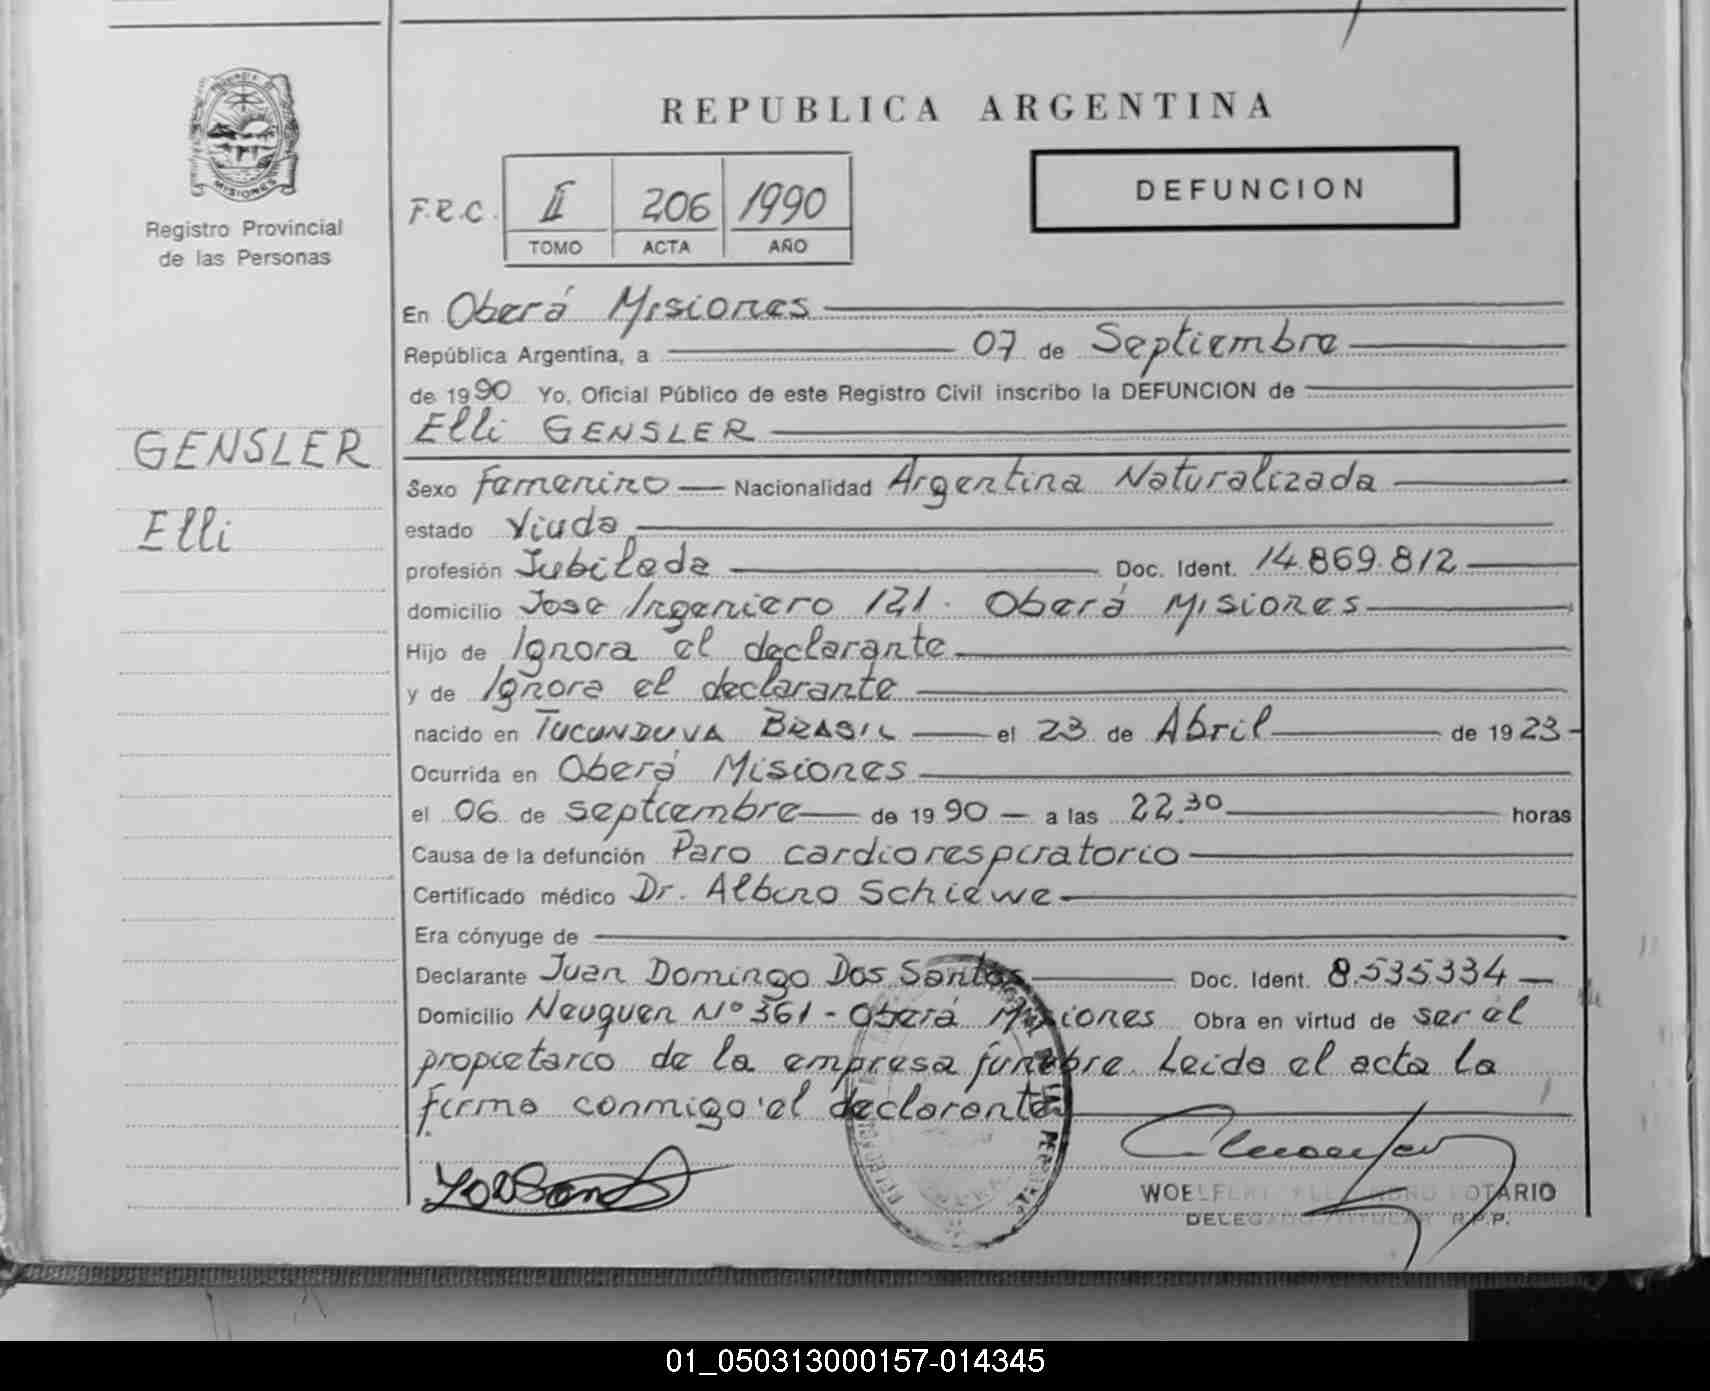 REPUBLICA ARGENTINA
PROVINCIA DE MISIONES
Registro Provincial
de las Personas
F.R.C. II 206 1990
TOMO ACTA AÑO
DEFUNCION
GENSLER
Elli
En Oberá Misiones
República Argentina, a 07 de Septiembre
de 1990 Yo, Oficial Público de este Registro Civil inscribo la DEFUNCION de
Elli GENSLER
Sexo femenino Nacionalidad Argentina Naturalizada
estado Viuda
profesión Jubilada Doc. Ident. 14.869.812
domicilio Jose Ingeniero 121. Oberá Misiones
Hijo de Ignora el declarante
y de Ignora el declarante
nacido en TUCUNDUVA BRASIL el 23 de Abril de 1923
Ocurrida en Oberá Misiones
el 06 de septiembre de 1990 a las 22.30 horas
Causa de la defunción Paro cardiorespiratorio
Certificado médico Dr. Albino Schiewe
Era cónyuge de
Declarante Juan Domingo Dos Santos Doc. Ident. 8.535334
Domicilio Neuquen Nº 361 - Oberá Misiones Obra en virtud de ser el
propietario de la empresa funebre. Leida el acta la
firma conmigo el declarante
DELEGADO TITULAR R.P.P.
01_050313000157-014345